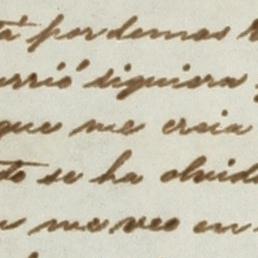 tá por demas
urrió siquiera
que me creia
to se ha olvid
n me veo en